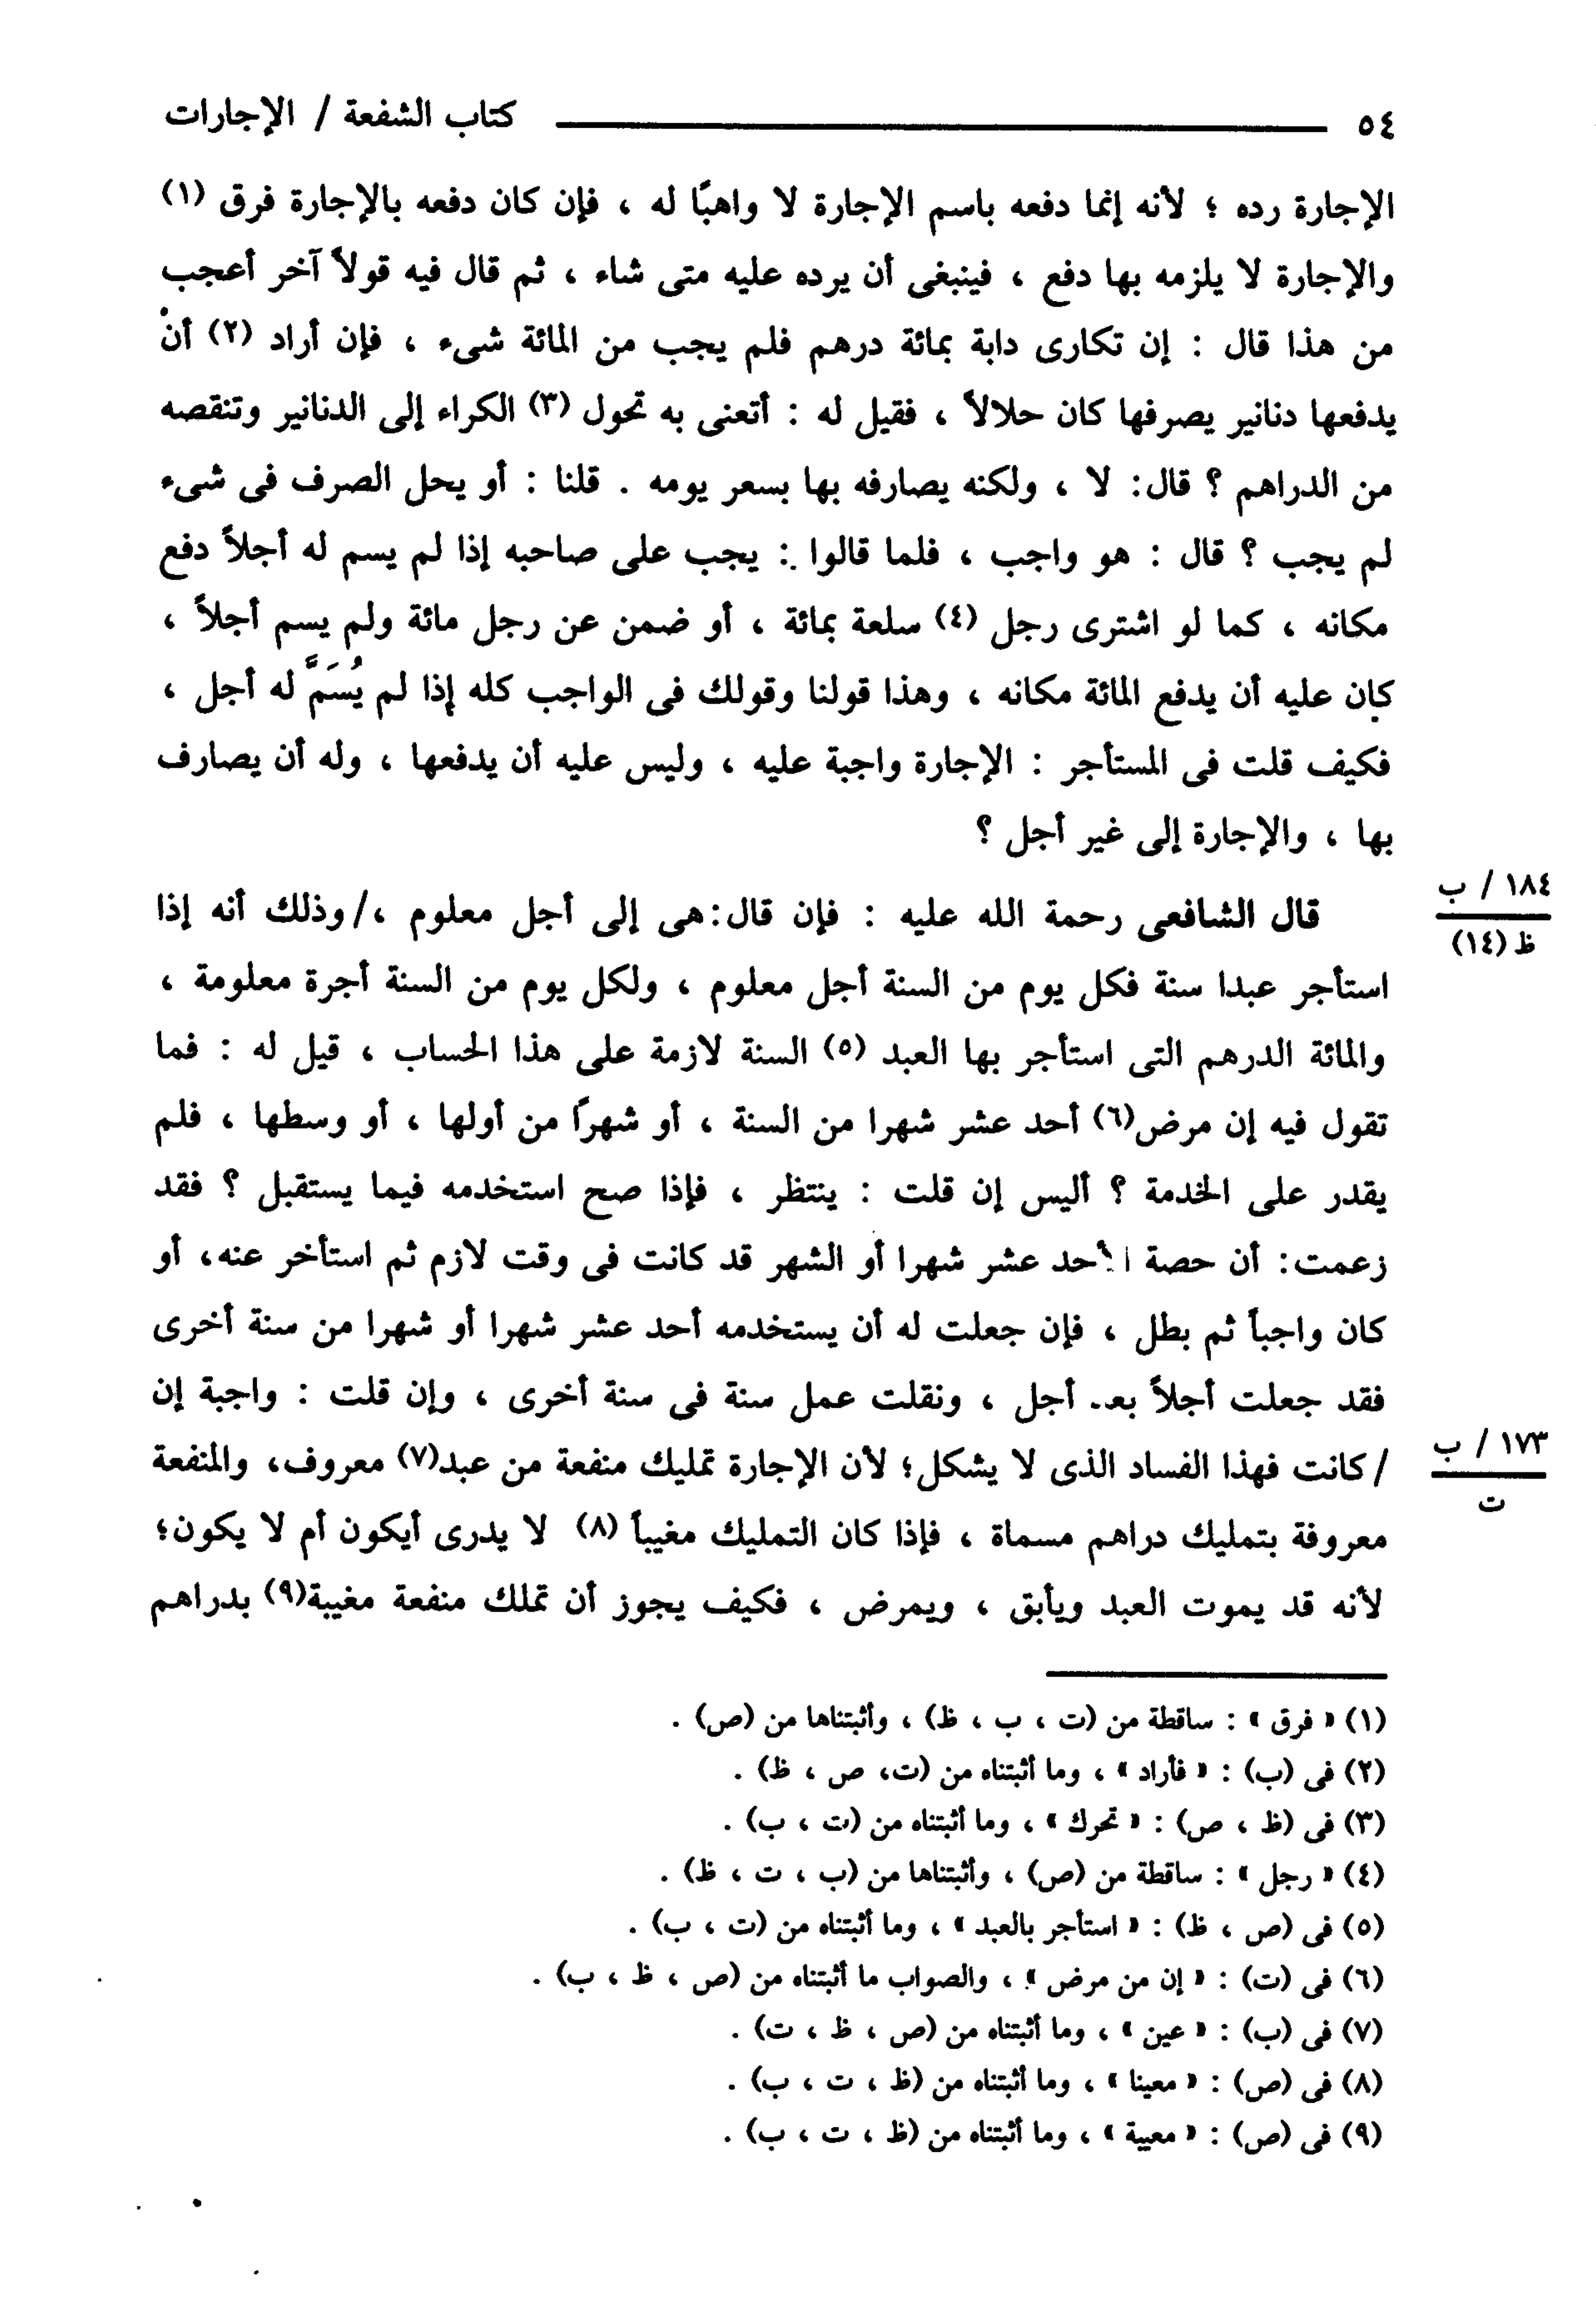 ٥٤ كتاب الشفعة / الإجارات
الإجارة رده ؛ لأنه إنما دفعه باسم الإجارة لا واهبًا له ، فإن كان دفعه بالإجارة فرق (١)
والإجارة لا يلزمه بها دفع ، فينبغى أن يرده عليه متى شاء ، ثم قال فيه قولاً آخر أعجب
من هذا قال : إن تكارى دابة بمائة درهم فلم يجب من المائة شىء ، فإن أراد (٢) أنْ
يدفعها دنانير يصرفها كان حلالاً ، فقيل له : أتعنى به تحول (٣) الكراء إلى الدنانير وتنقصه
من الدراهم ؟ قال: لا ، ولكنه يصارفه بها بسعر يومه . قلنا : أو يحل الصرف فى شىء
لم يجب ؟ قال : هو واجب ، فلما قالوا : يجب على صاحبه إذا لم يسم له أجلاً دفع
مكانه ، كما لو اشترى رجل (٤) سلعة بمائة ، أو ضمن عن رجل مائة ولم يسم أجلاً ،
كان عليه أن يدفع المائة مكانه ، وهذا قولنا وقولك فى الواجب كله إذا لم يُسَمَّ له أجل ،
فكيف قلت فى المستأجر : الإجارة واجبة عليه ، وليس عليه أن يدفعها ، وله أن يصارف
بها ، والإجارة إلى غير أجل ؟
١٨٤ / ب
ظ (١٤)
قال الشافعى رحمة الله عليه : فإن قال: هى إلى أجل معلوم ،/ وذلك أنه إذا
استأجر عبدا سنة فكل يوم من السنة أجل معلوم ، ولكل يوم من السنة أجرة معلومة ،
والمائة الدرهم التى استأجر بها العبد (٥) السنة لازمة على هذا الحساب ، قيل له : فما
تقول فيه إن مرض(٦) أحد عشر شهرا من السنة ، أو شهرًا من أولها ، أو وسطها ، فلم
يقدر على الخدمة ؟ أليس إن قلت : ينتظر ، فإذا صح استخدمه فيما يستقبل ؟ فقد
زعمت: أن حصة الأحد عشر شهرا أو الشهر قد كانت فى وقت لازم ثم استأخر عنه، أو
كان واجبًا ثم بطل ، فإن جعلت له أن يستخدمه أحد عشر شهرا أو شهرا من سنة أخرى
فقد جعلت أجلاً بعد أجل ، ونقلت عمل سنة فى سنة أخرى ، وإن قلت : واجبة إن
١٧٣ / ب
ت
/ كانت فهذا الفساد الذى لا يشكل؛ لأن الإجارة تمليك منفعة من عبد(٧) معروف، والمنفعة
معروفة بتمليك دراهم مسماة ، فإذا كان التمليك مغيبًا (٨) لا يدرى أيكون أم لا يكون؛
لأنه قد يموت العبد ويأبق ، ويمرض ، فكيف يجوز أن تملك منفعة مغيبة(٩) بدراهم
(١) « فرق » : ساقطة من (ت ، ب ، ظ) ، وأثبتناها من (ص) .
(٢) فى (ب) : « فأراد » ، وما أثبتناه من (ت، ص ، ظ) .
(٣) فى (ظ ، ص) : « تحرك » ، وما أثبتناه من (ت ، ب) .
(٤) « رجل » : ساقطة من (ص) ، وأثبتناها من (ب ، ت ، ظ) .
(٥) فى (ص ، ظ) : « استأجر بالعبد » ، وما أثبتناه من (ت ، ب) .
(٦) فى (ت) : « إن من مرض » ، والصواب ما أثبتناه من (ص ، ظ ، ب) .
(٧) فى (ب) : « عين » ، وما أثبتناه من (ص ، ظ ، ت) .
(٨) فى (ص) : « معينا » ، وما أثبتناه من (ظ ، ت ، ب) .
(٩) فى (ص) : « معيبة » ، وما أثبتناه من (ظ ، ت ، ب) .